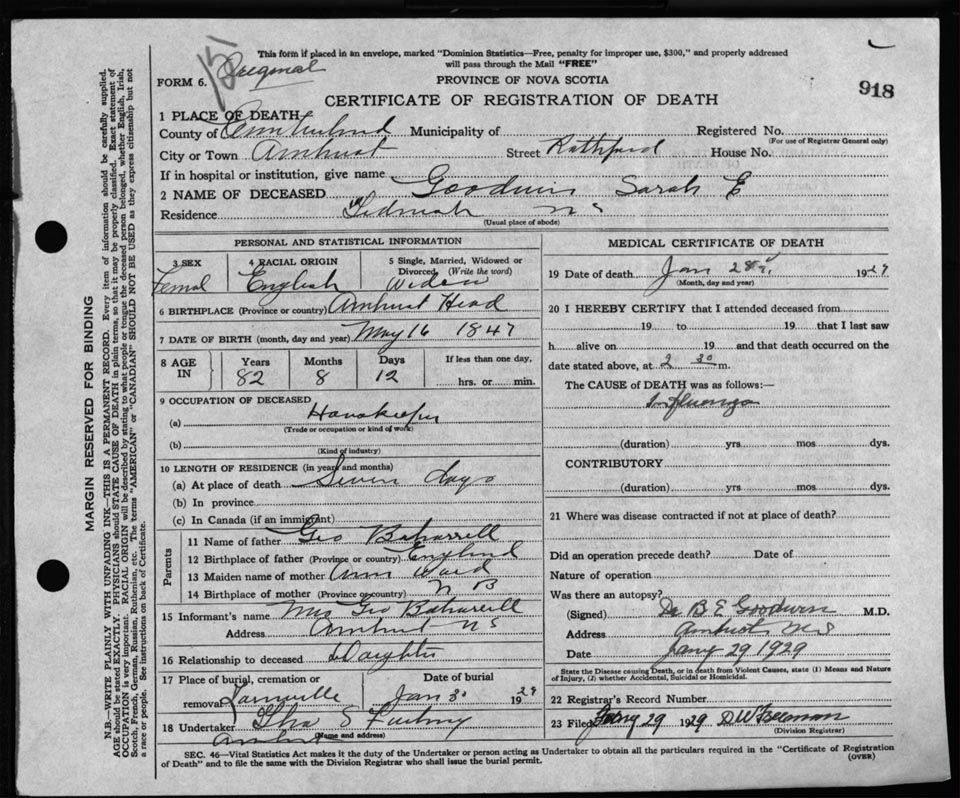 This form if placed in an envelope, marked "Dominion Statistics—Free, penalty for improper use, $300," and properly addressed
will pass through the Mail "FREE"
FORM 6.
PROVINCE OF NOVA SCOTIA
918
CERTIFICATE OF REGISTRATION OF DEATH
1 PLACE OF DEATH
County of Cumberland Municipality of Registered No.
(For use of Registrar General only)
City or Town Amherst Street House No.
If in hospital or institution, give name
2 NAME OF DECEASED Goodwin Sarah E
Residence Tidnish N S
(Usual place of abode)
PERSONAL AND STATISTICAL INFORMATION
3 SEX 4 RACIAL ORIGIN 5 Single, Married, Widowed or Divorced (Write the word)
Femal English Widow
6 BIRTHPLACE (Province or country) Amherst Head
7 DATE OF BIRTH (month, day and year) May 16 1847
8 AGE IN Years Months Days If less than one day,
82 8 12 hrs. or min.
9 OCCUPATION OF DECEASED
(a) Housekeeper
(Trade or occupation or kind of work)
(b)
(Kind of industry)
10 LENGTH OF RESIDENCE (in years and months)
(a) At place of death Seven days
(b) In province
(c) In Canada (if an immigrant)
Parents
11 Name of father Geo Baharrell
12 Birthplace of father (Province or country) England
13 Maiden name of mother Ann Ward
14 Birthplace of mother (Province or country) N B
15 Informant's name Mrs Geo Baharrell
Address Amherst N S
16 Relationship to deceased Daughter
17 Place of burial, cremation or removal Date of burial
Jan 30 1929
18 Undertaker
Amherst (Name and address)
MEDICAL CERTIFICATE OF DEATH
19 Date of death Jan 28 1929
(Month, day and year)
20 I HEREBY CERTIFY that I attended deceased from
19 to 19 that I last saw
h alive on 19 and that death occurred on the
date stated above, at 2 30 m.
The CAUSE of DEATH was as follows:—
Influenza
(duration) yrs mos dys.
CONTRIBUTORY
(duration) yrs mos dys.
21 Where was disease contracted if not at place of death?
Did an operation precede death? Date of
Nature of operation
Was there an autopsy?
(Signed) Dr B E Goodwin M.D.
Address Amherst N S
Date Jany 29 1929
State the Disease causing Death, or in death from Violent Causes, state (1) Means and Nature
of Injury, (2) whether Accidental, Suicidal or Homicidal.
22 Registrar's Record Number
23 Filed Jany 29 1929 D W Freeman
(Division Registrar)
SEC. 46—Vital Statistics Act makes it the duty of the Undertaker or person acting as Undertaker to obtain all the particulars required in the "Certificate of Registration
of Death" and to file the same with the Division Registrar who shall issue the burial permit.
(OVER)
MARGIN RESERVED FOR BINDING
N.B.—WRITE PLAINLY WITH UNFADING INK—THIS IS A PERMANENT RECORD. Every item of information should be carefully supplied.
AGE should be stated EXACTLY. PHYSICIANS should STATE CAUSE OF DEATH in plain terms, so that it may be properly classified. Exact statement of
OCCUPATION is very important. RACIAL ORIGIN will be described by stating to what people or tongue the deceased person belonged, whether English, Irish,
Scotch, French, German, Russian, Ruthenian, etc. The terms "AMERICAN" or "CANADIAN" SHOULD NOT BE USED as they express citizenship but not
a race or people. See instructions on back of Certificate.